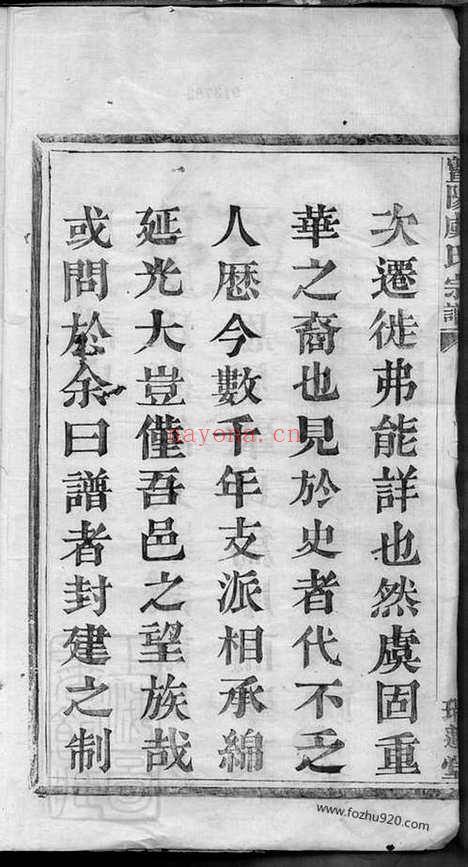 暨陽虞氏宗譜
次遷徙弗能詳也然虞固重
華之裔也見於史者代不乏
人歷今數千年支派相承綿
延光大豈僅吾邑之望族哉
或問於余曰譜者封建之制
nayona.cn
www.fozhu920.com